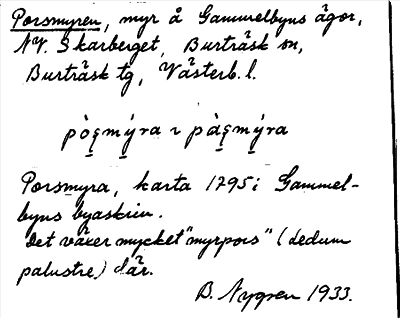 Porsmyren, myr å Gammelbyns ägor,
NV. Skarberget, Burträsk sn,
Burträsk tg, Västerb. l.
pòꞩmýra ɿ pàꞩmýra
Porsmyra, karta 1795 i Gammel-
byns byaskrin.
Det växer mycket "myrpors" (dedum
palustre) där.
B. Nygren 1933.